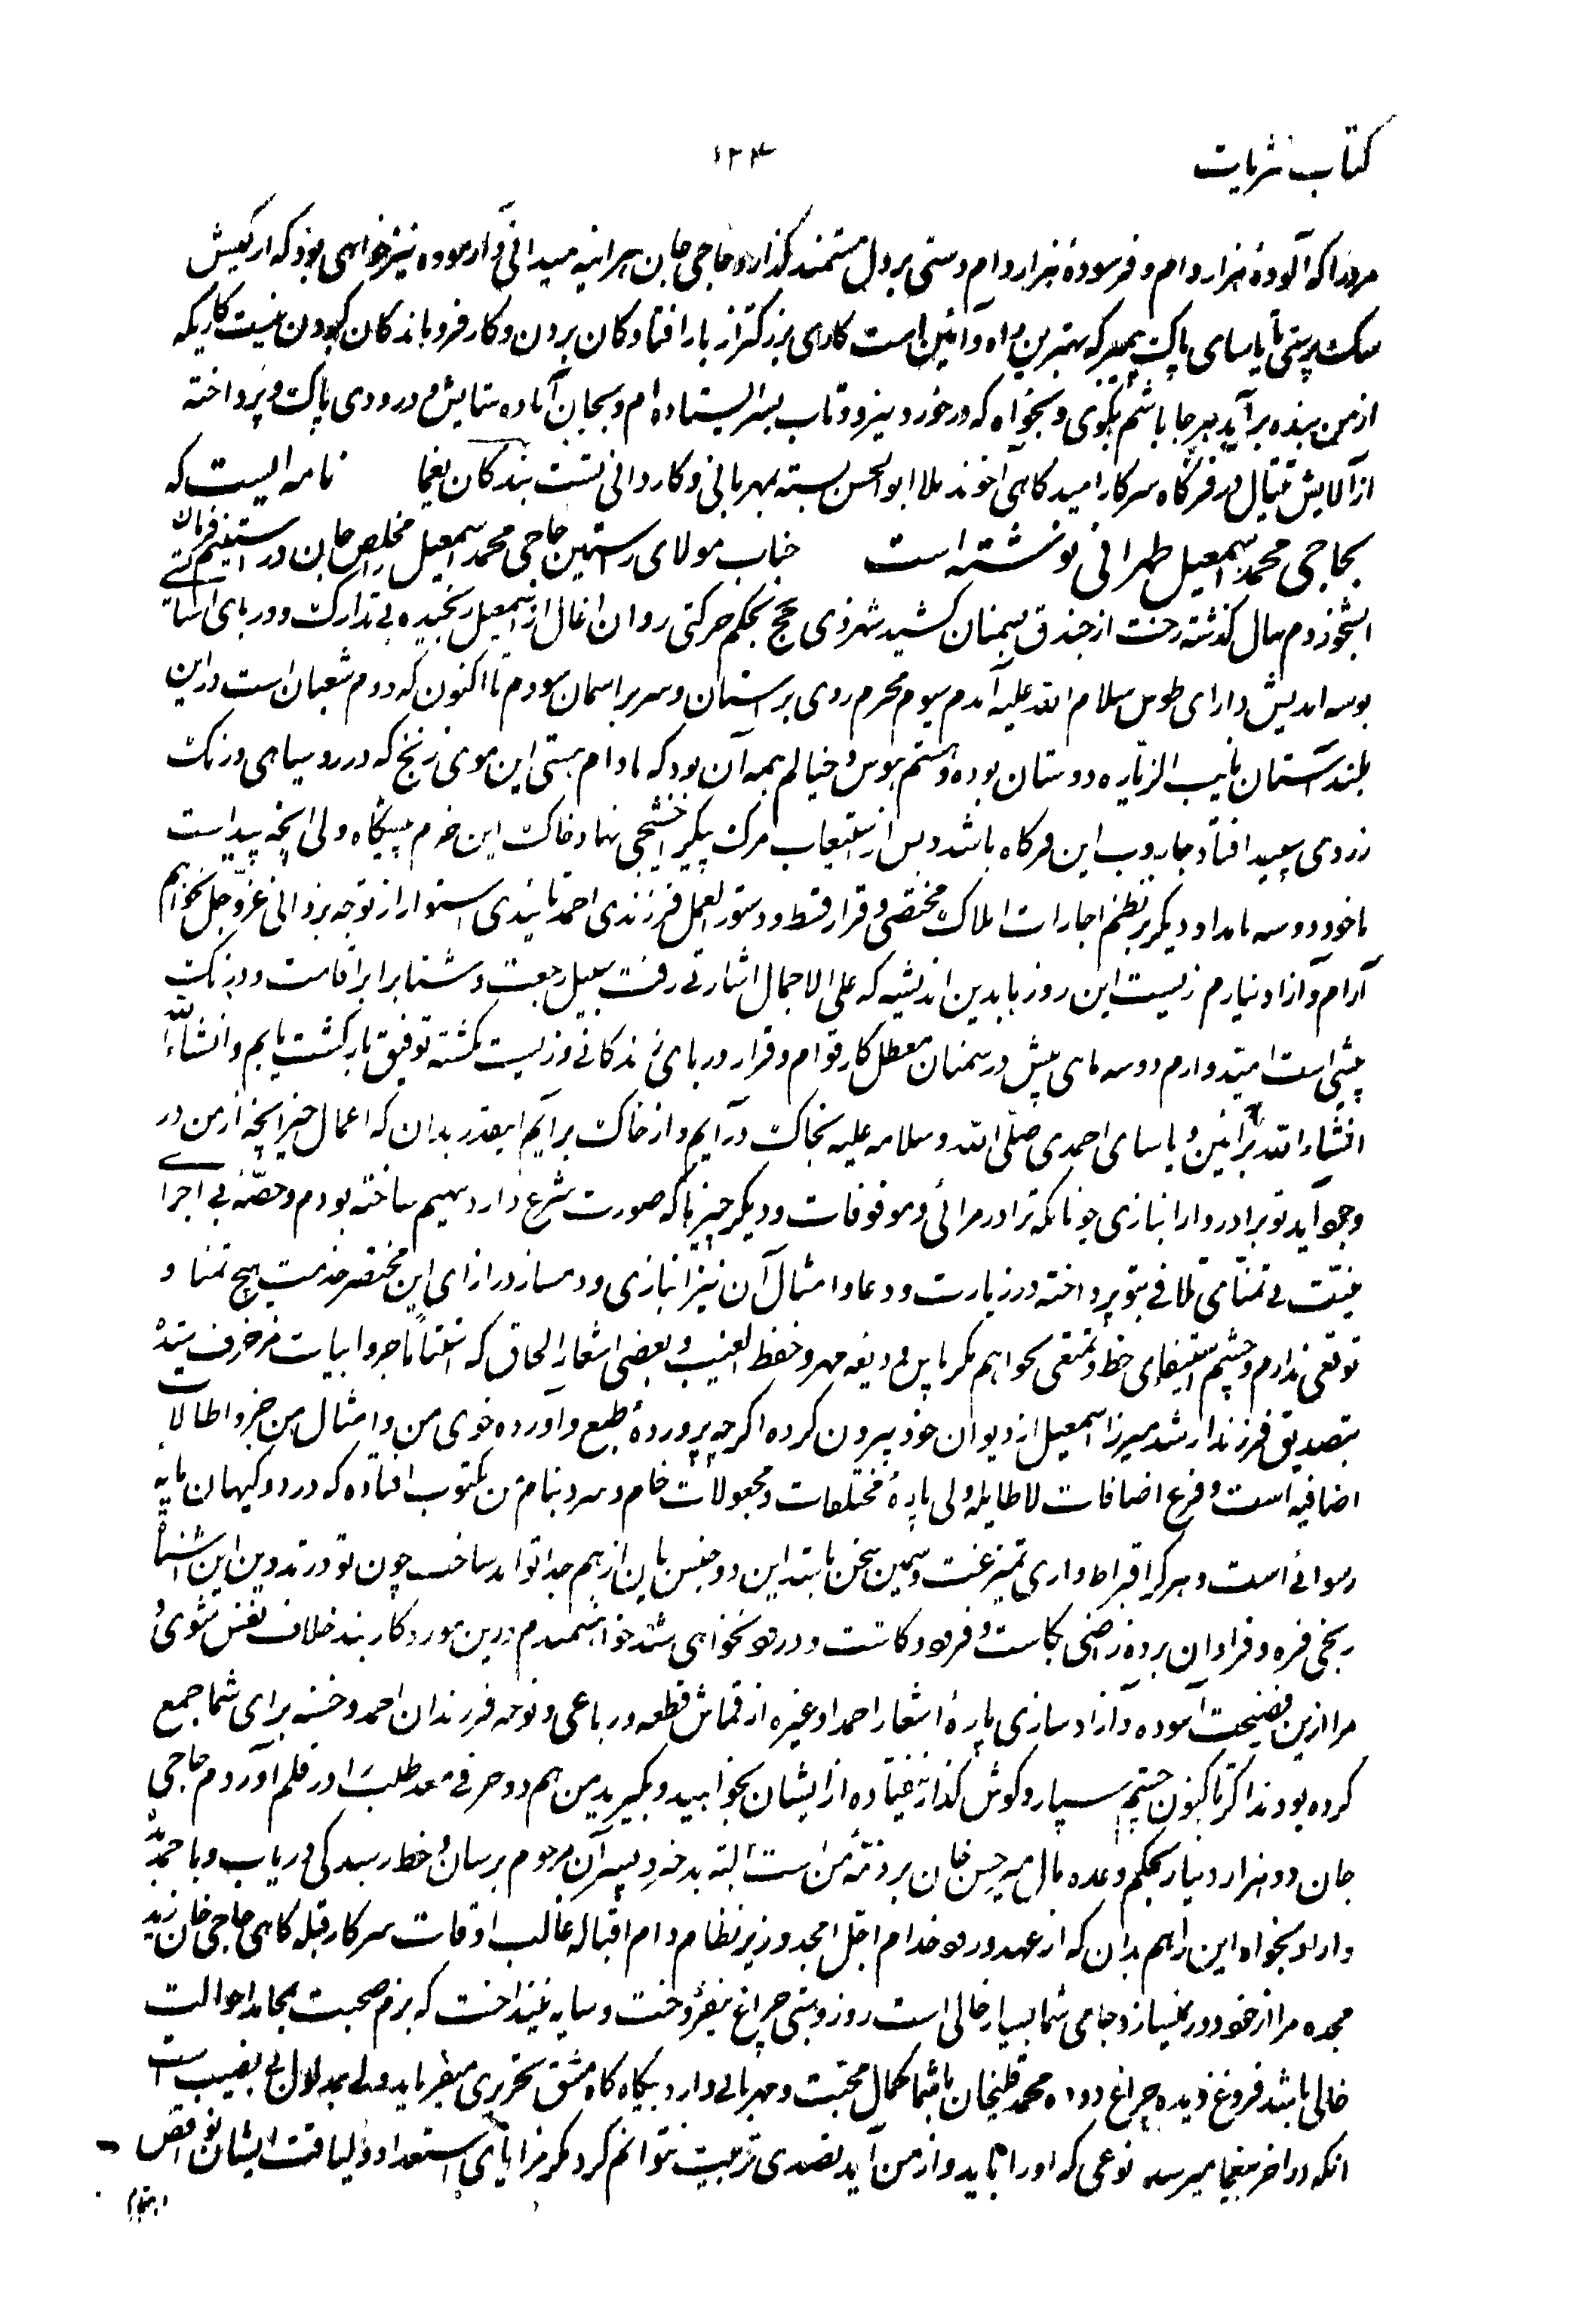 کتاب نثریات
۱۲۴
مردرا که آلودهٔ هزار دام و فرسودهٔ هزار دام دستی بر دل مستمند گذارد حاجی جان هر آینه میدانی و آزموده نیز خواهی بود که در کیش
سگ پرستی تا یاسای پاک پیمبر که بهترین راه و آئین است کاری بزرگتر از بار افتادگان بردن و کار فروماندگان کردن نیست کاریکه
از من بنده برآید بهر جا باشم بگوی و بخواه که درخورد نیرو و تاب بسر ایستاده ام و بجان آماده ستایش و درودی پاک و پرداخته
از آلایش قیتال در فرگاه سرکار امیدگاهی آخوند ملا ابوالحسن بسته بمهربانی و کاردانی تست بندگان یغما نامه ایست که
بحاجی محمد اسمعیل طهرانی نوشته است جناب مولای راستین حاجی محمد اسمعیل مخلص جان در استیغم فرمان
آبشخورم سال گذشته رخت از جندق بسمنان کشید شهر ذی حج بحکم حرکتی روان اغال از اسمعیل رنجیده بی تدارک و دربای اسباب
بوسه اندیش دارای طوس سلام الله علیه آمدم سیوم محرم روی بر آستان و سر بر آسمان سودم تا اکنون که دوم شعبان است در این
بلند آستان نایب الزیاره دوستان بوده و هستم هوس و خیالم همه آن بود که مادام هستی این موی زنخ که در روسیاهی و رنگ
زردی سپید افتاد جاروب این فرگاه باشد و پس از استیعاب مرگ پیکر اخشیجی نهاد خاک این خرم پیشگاه ولی آنچه پیداست
تا خود دو سه بامداد دیگر بر نظم اجارات املاک مختصی و قرار قسط و دستورالعمل فرزندی احمد تا نیدی استوار از توجه یزدانی عز و جل نخواهم
آرام و آزاد نیارم زیست این روزها بدین اندیشه که علی الاجمال اشارتی رفت سبیل رجعت و شتاب را بر اقامت و درنگ
پیشی است امیدوارم دو سه ماهی پیش در سمنان معطل کار قوام و قرار دربای زندگانی و زیست گشته توفیق بازگشت یابم و انشاء الله
انشاء الله بر آئین و یاسای احمدی صلی الله و سلامه علیه بخاک درآیم و از خاک برآیم اینقدر بدان که اعمال خیر آنچه از من در
وجود آید تو برادروار انبازی چونانکه ترا در مرائی و موقوفات و دیگر چیزها که صورت شرع دارد سهیم ساخته بودم و حصه بی اجرای
منت بی تمنای تلافی بتو پرداخته در زیارت و دعا و امثال آن نیز انبازی و دمساز در ازای این مختصر خدمت هیچ تمنا و
توقعی ندارم و چشم استیفای حظ و تمتعی نخواهم مگر پاس ودیعه مهر و حفظ الغیب و بعضی اشعار الحاق که اتفاقا ماجرو ابیات مزخرف شد
بتصدیق فرزند ارشد میرزا اسمعیل از دیوان خود بیرون کرده اگر چه پروردهٔ طبع و آورده خوی من و امثال من جز و اطالات
اضافیه است و فرع اضافات لاطایله ولی پارهٔ مختلعات و مجعولات خام و سرد بنام من مکتوب افتاده که در دو کیهان مایه
رسوائی است و هر که را قیراط واری تمیز غث و سمین سخن باشد این دو جنس باین از هم جدا تواند ساخت چون تو در تدوین این اشتات
رنجی فره و فراوان برده راضی بکاست و فرود کاست و در خود نخواهی شد خواهشمندم درین مورد کاربند خلاف نفس شوی و
مرا ازین فضیحت آسوده و آزاد سازی پارهٔ اشعار احمد او غیره از قماش قطعه و رباعی و نوحه فرزندان احمد و خسته برای شما جمع
کرده بودند اگر تاکنون چشم سپار و گوش گذار نیفتاده از ایشان بخواهید و بگیرید من هم دو حرفی معد طلب را در قلم آوردم حاجی
جان دو هزار دینار بحکم وعده مال میر حسن خان بر ذمهٔ من است البته بدختر و پسر آن مرحوم برسان و خط رسید گی دریاب و با حمد
دار او بخواه این را هم بدان که از عهد ورود خدام اجل امجد وزیر نظام دام اقباله غالب اوقات سرکار قبله گاهی حاجی خان زید
مجده مرا از خود دور نمیسازد و جای شما بسیار خالی است روز و شبی چراغ نیفروخت و سایه نینداخت که بزم صحبت بمحامد احوالت
خالی باشد فروغ دیده چراغ دوده محمدقلیخان با شما کمال محبت و مهربانی دارد بیگاه گاه مشق تحریری میفرماید ولی بمدلول بی نصیب است
آنکه در آخر بیغما میرسد نوعی که او را باید و از من آید تصدی تربیت نتوانم کرد مگر مزایای استعداد و لیاقت ایشان نواقص
اهتمام